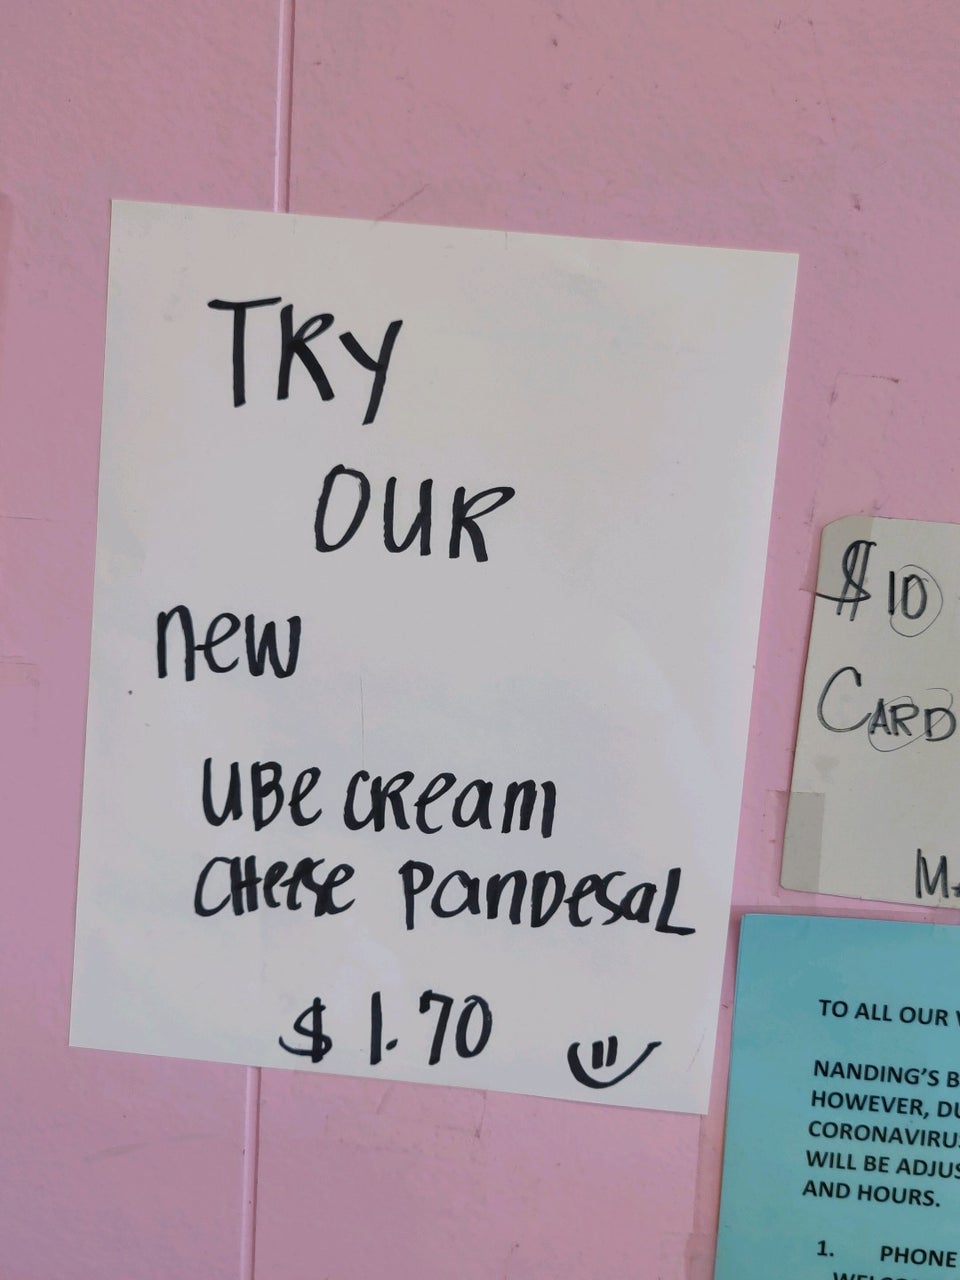 TRy
OUR
new
UBe CReam
CHeese PanDesaL
$1.70
$10
CARD
TO ALL OUR
NANDING'S
HOWEVER,
WILL BE
AND HOURS.
1. PHONE